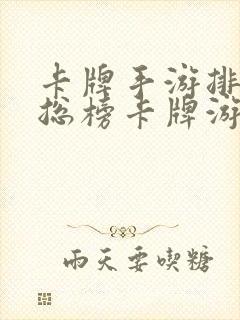 卡牌手游排
总榜卡牌游
雨天要喫糖